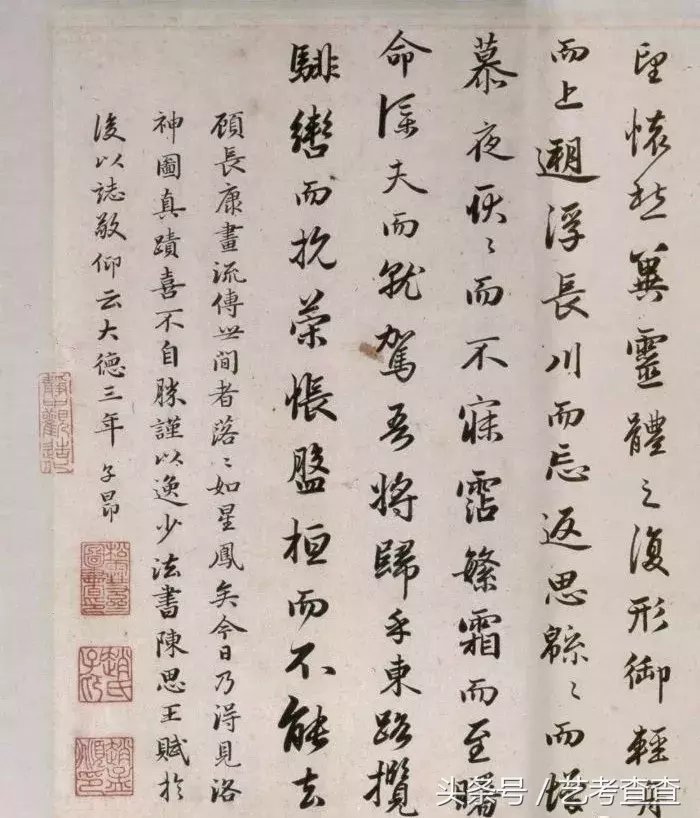 望懷愁冀靈體之復形御輕舟
而上遡浮長川而忘返思綿〻而增
慕夜耿〻而不寐霑繁霜而至曙
命僕夫而就駕吾將歸乎東路攬
騑轡而抗策悵盤桓而不能去
顧長康畫流傳世間者落〻如星鳳矣今日乃得見洛
神圖真蹟喜不自勝謹以逸少法書陳思王賦於
後以誌敬仰云大德三年 子昂
靜中觀造
趙氏子昂
趙孟頫印
头条号 / 艺考查查